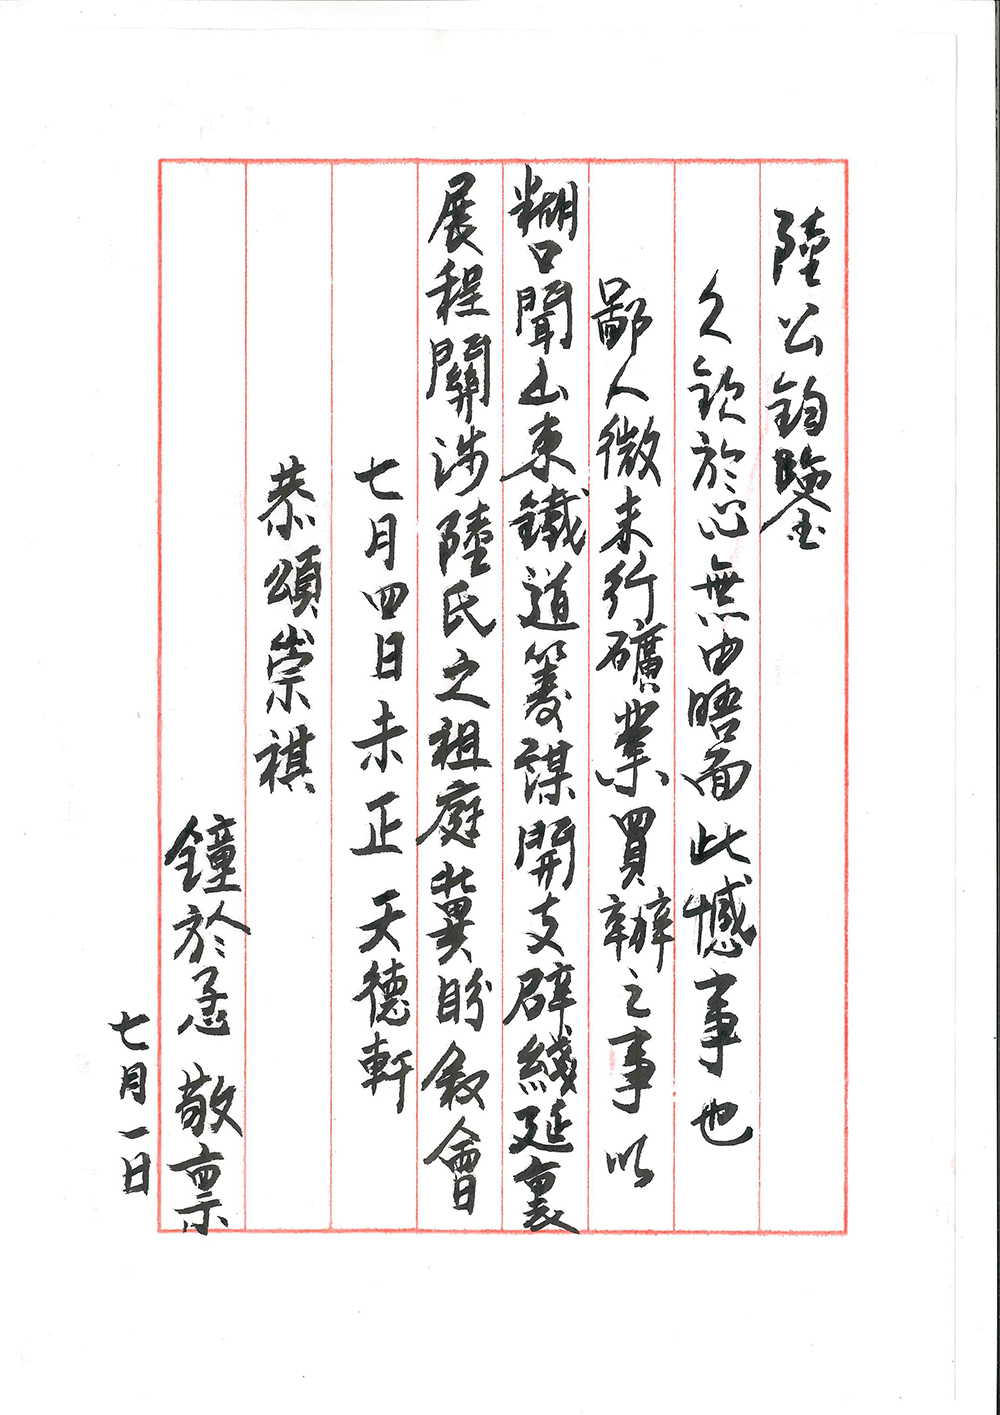 陸公鈞鑒
久欽於心無由晤面此憾事也
鄙人微末行礦業買辦之事以
糊口聞山東鐵道籌謀開支辟綫延裏
展程關涉陸氏之祖庭冀盼敘會
七月四日未正天德軒
恭頌崇祺
鐘於恁 敬禀
七月一日